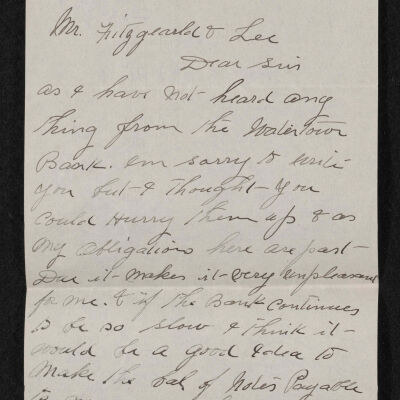 Mr. Fitzgearld & Lee
Dear Sir
as I have not heard any
thing from the Watertown
Bank. em sorry to write
you but I thought you
could Hurry them up & as
my obligations here are past
Due it makes it very unpleasant
for me. & if the Bank continues
to be so slow I think it
would be a good Idea to
make the bal of Notes Payable
to